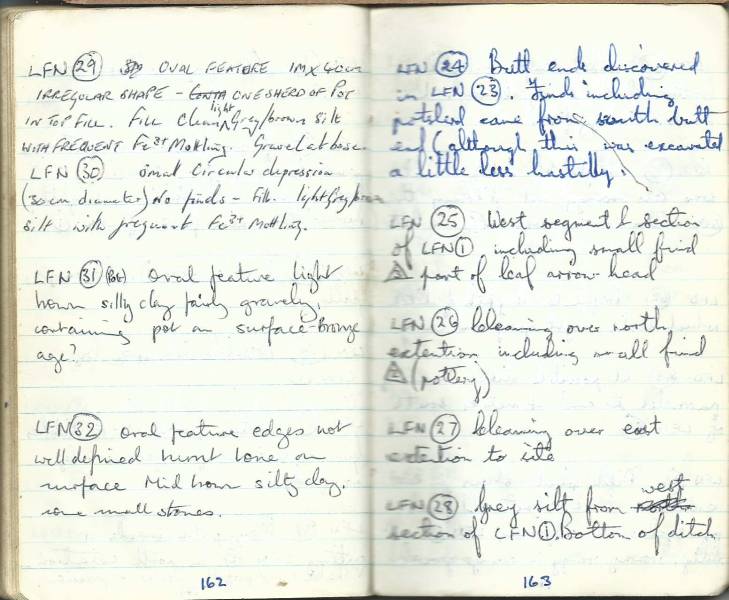 LFN 29 OVAL FEATURE 1M X 40cm
IRREGULAR SHAPE - ONE SHERD OF POT
IN TOP FILL. FILL Clean, light Grey/brown silt
WITH FREQUENT Fe3+ Mottling. Gravel at base.
LFN 30 small Circular depression
(30cm diameter) No finds - Fill. light Grey/brown
silt with frequent Fe3+ Mottling.
LFN 31 Oval feature light
brown silty clay fairly gravely,
containing pot on surface - Bronze
age?
LFN 32 Oval feature edges not
well defined burnt bone on
surface Mid brown silty clay.
some small stones.
162
LFN 24 Butt ends discovered
in LFN 23. Finds including
came from south butt
end (although this was excavated
a little less hastilly.
LFN 25 West segment & section
of LFN 1 including small find
part of leaf arrow-head
LFN 26 Cleaning over north
extention including small find
(pottery)
LFN 27 Cleaning over east
extention to site
LFN 28 Grey silt from west
section of LFN 1. Bottom of ditch
163